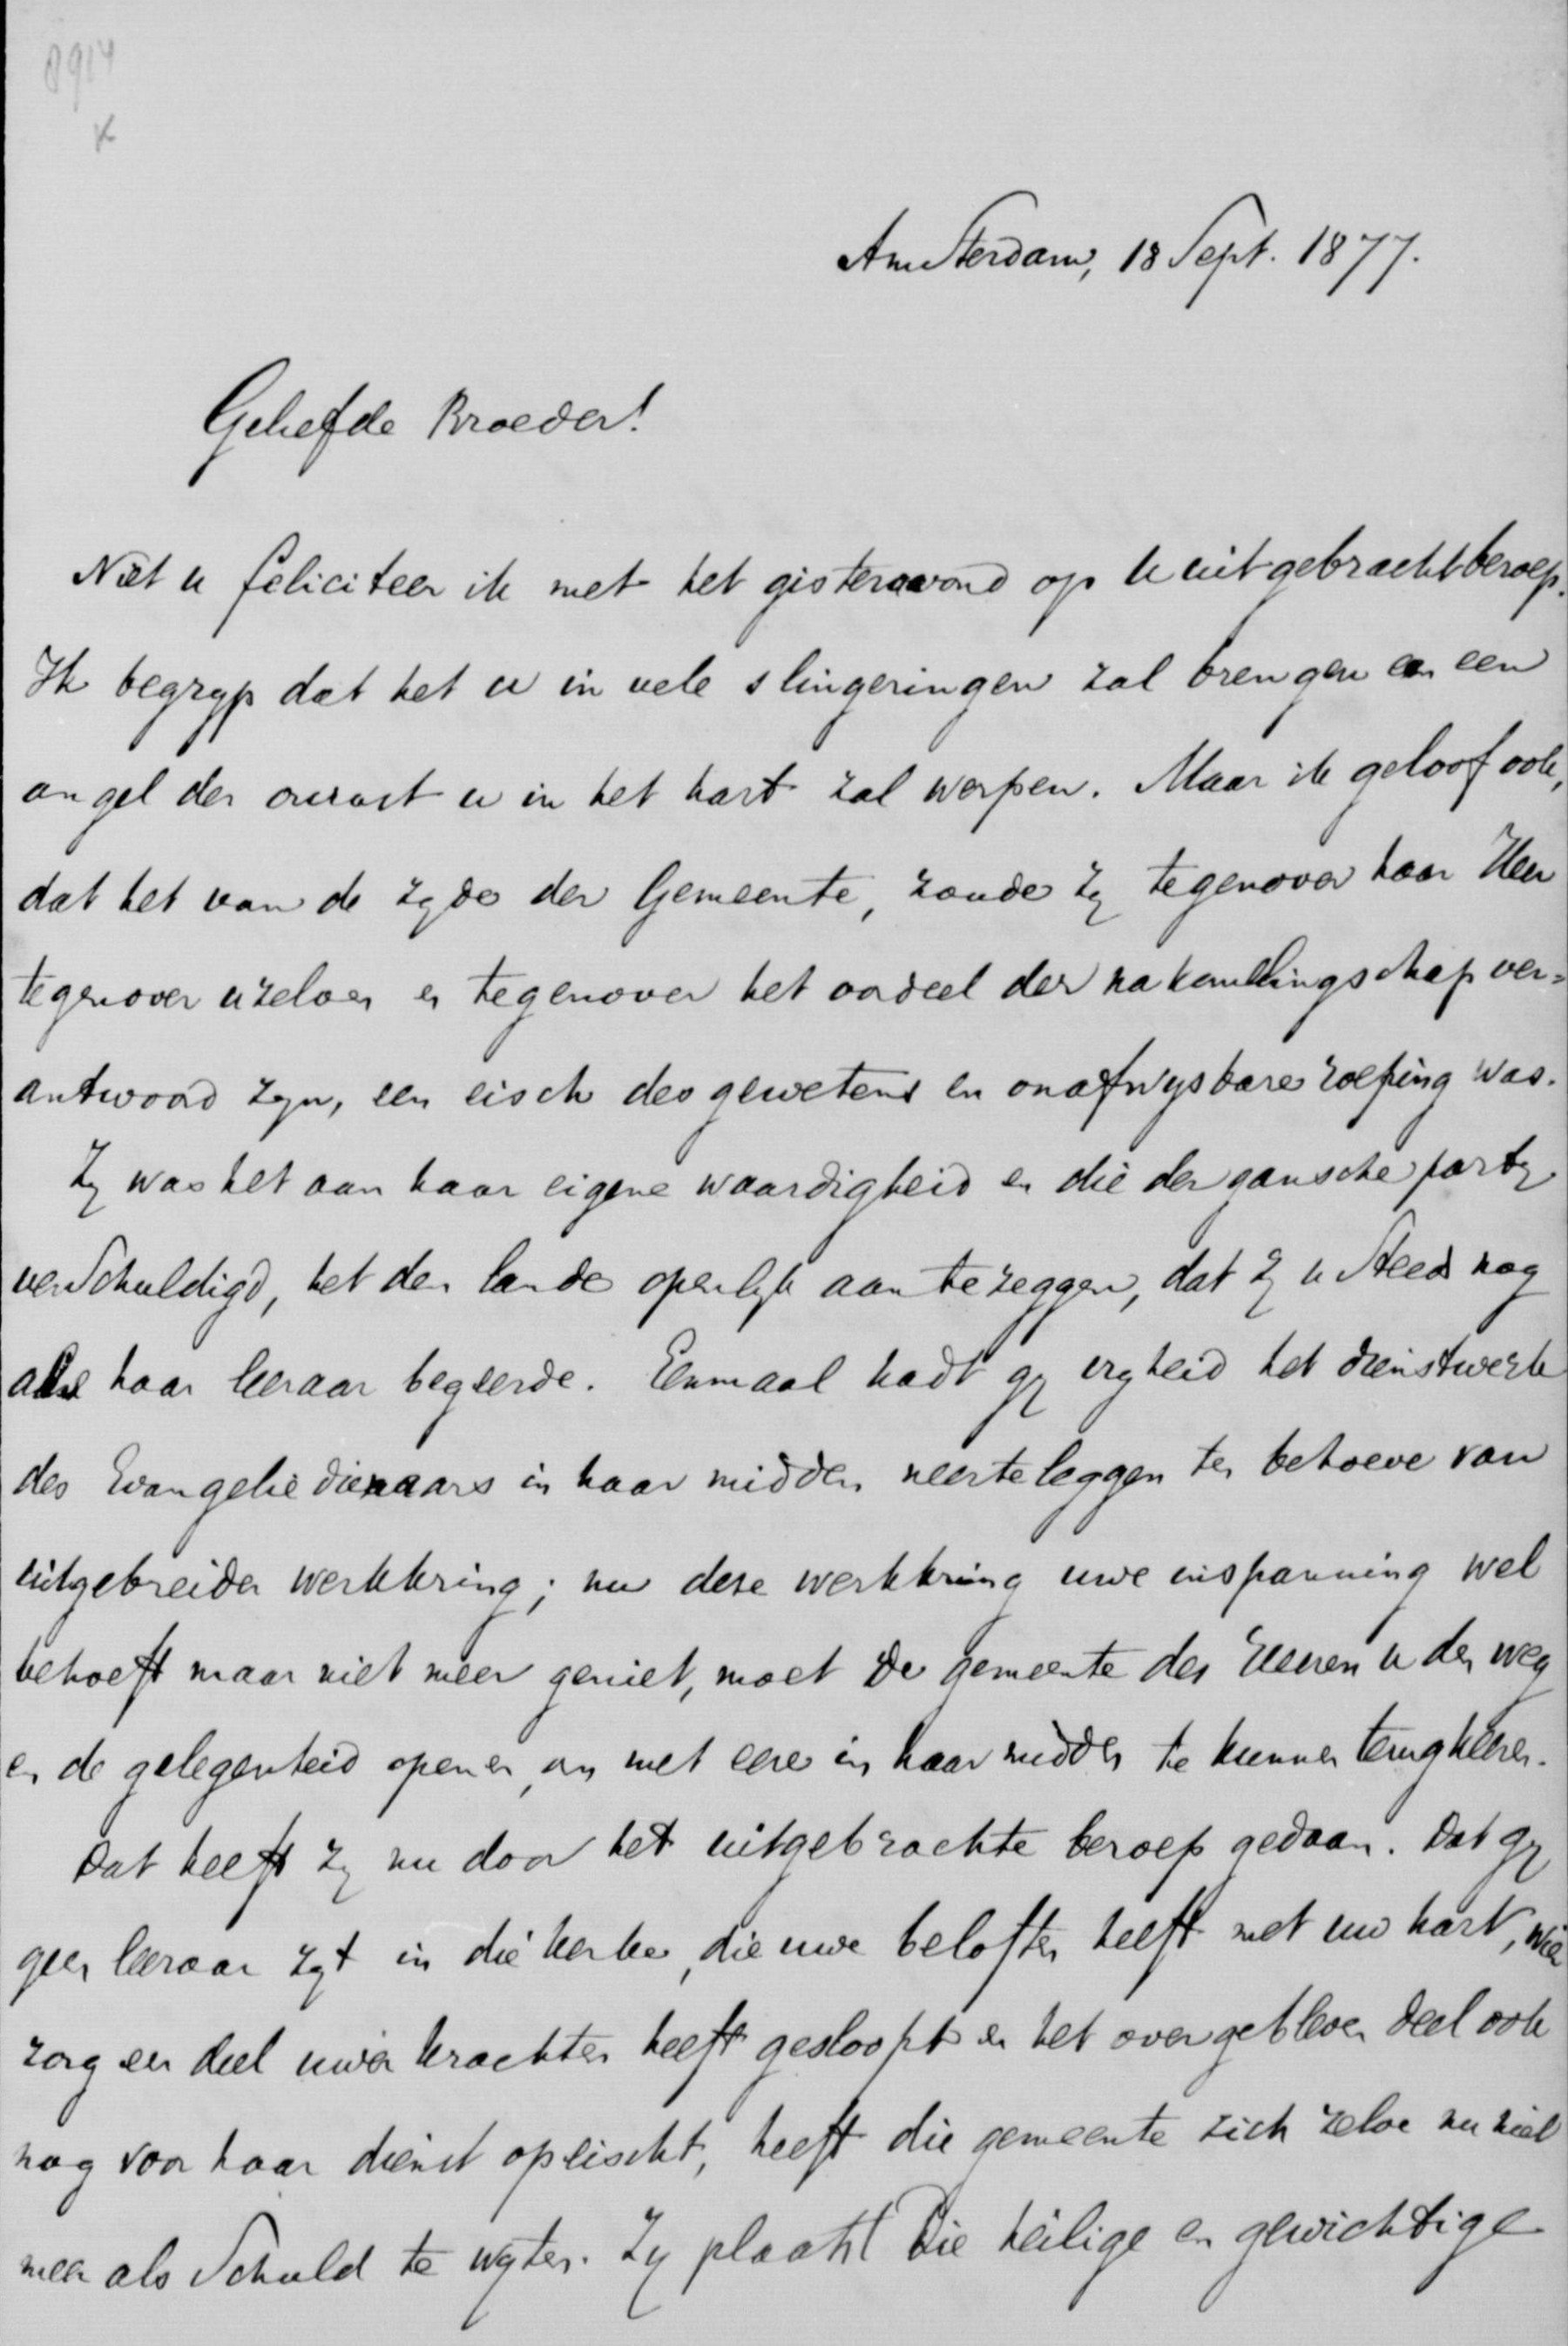 8914
x
Amsterdam, 18 Sept. 1877.
Geliefde Broeder!
Niet u feliciteer ik met het gisteravond op u uitgebracht beroep.
Ik begryp dat het u in vele slingeringen zal brengen en een
angel der onrust u in het hart zal werpen. Maar ik geloof ook,
dat het van de zyde der Gemeente, zoude zy tegenover haar Heer
tegenover uzelven en tegenover het oordeel der nakomelingschap ver=
antwoord zyn, een eisch des gewetens en onafwysbare roeping was.
Zy was het aan haar eigene waardigheid en die der gansche party
verschuldigd, het den lande openlyk aan te zeggen, dat zy u steeds nog
als haar leeraar begeerde. Eenmaal hadt gy vryheid het dienstwerk
des Evangeliedienaars in haar midden neer te leggen ten behoeve van
uitgebreider werkkring; nu deze werkkring uwe inspanning wel
behoeft maar niet meer geniet, moet de gemeente des Heeren u den weg
en de gelegenheid openen, om met eere in haar midden te kunnen terugkeeren.
Dat heeft zy nu door het uitgebrachte beroep gedaan. Dat gy
geen leeraar zyt in die kerke, die uwe beloften heeft met uw hart, wier
zorg een deel uwer krachten heeft gesloopt en het overgebleven deel ook
nog voor haar dienst opeischt, heeft die gemeente zich zelve nu niet
meer als schuld te wyten. Zy plaatst die heilige en gewichtige